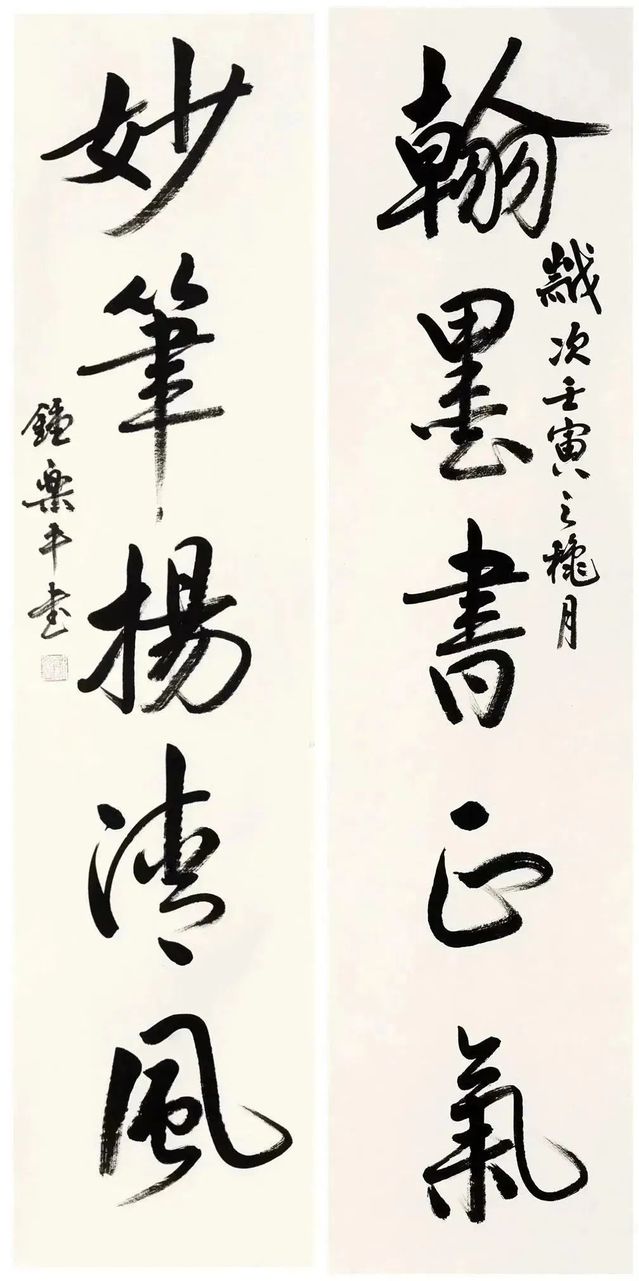 翰墨書正氣
歲次壬寅之穐月
妙筆揚清風
鍾樂平書